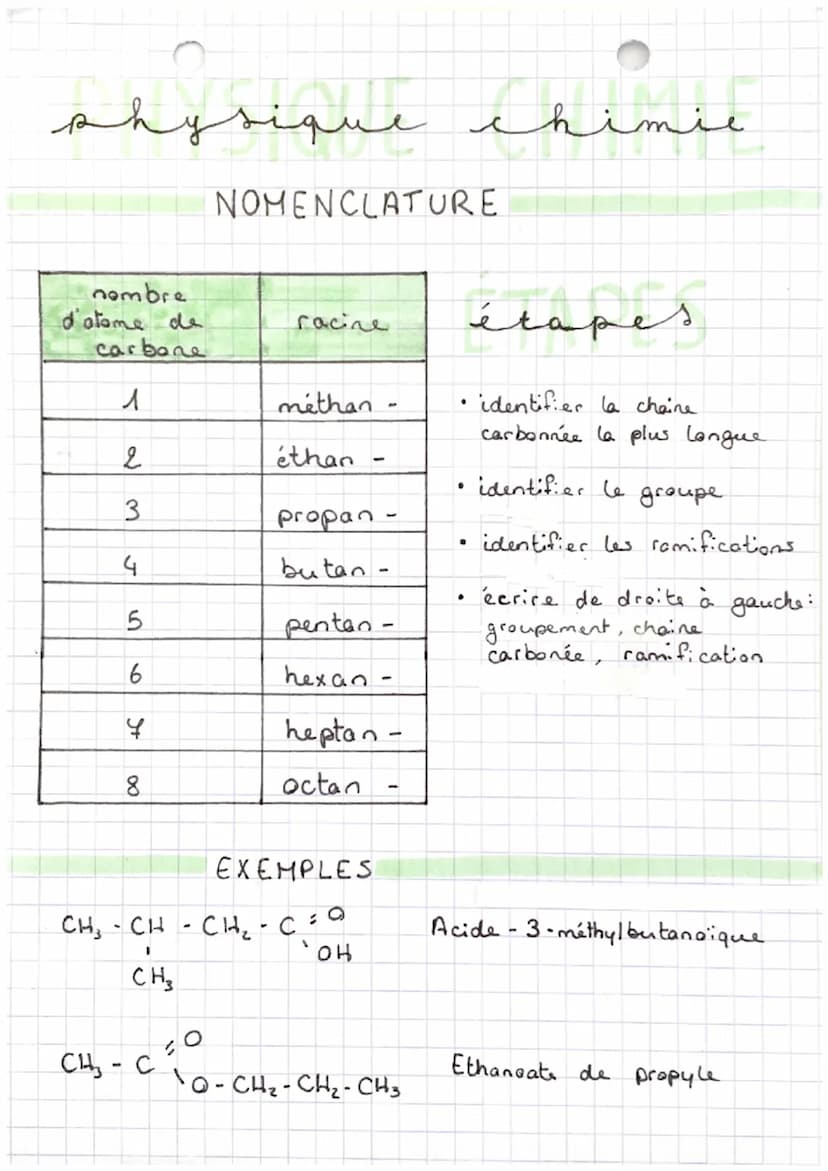 PHYSIQUE CHIMIE
physique chimie
NOMENCLATURE
nombre
d'atome de
carbone
racine
1 méthan -
2 éthan -
3 propan -
4 butan -
5 pentan -
6 hexan -
7 heptan -
8 octan -
ÉTAPES
étapes
• identifier la chaine
carbonnée la plus longue
• identifier le groupe
• identifier les ramifications
• écrire de droite à gauche:
groupement, chaine
carbonée, ramification
EXEMPLES
CH₃ - CH - CH₂ - C = O
OH
CH₃
Acide - 3 - méthylbutanoïque
CH₃ - C = O
O - CH₂ - CH₂ - CH₃
Ethanoate de propyle